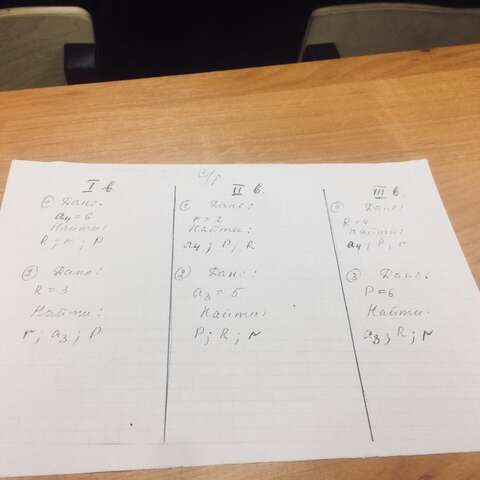 с/р
I в.
① Дано:
a₄ = 6
Найти:
R; r; P
② Дано:
R = 3
Найти:
r; a₃; P
II в.
① Дано:
r = 2
Найти:
a₄; P; R
② Дано:
a₃ = 5
Найти:
P; R; r
III в.
Дано:
R = 4
Найти:
a₄; P; r
Дано:
P = 6
Найти:
a₃; R; r